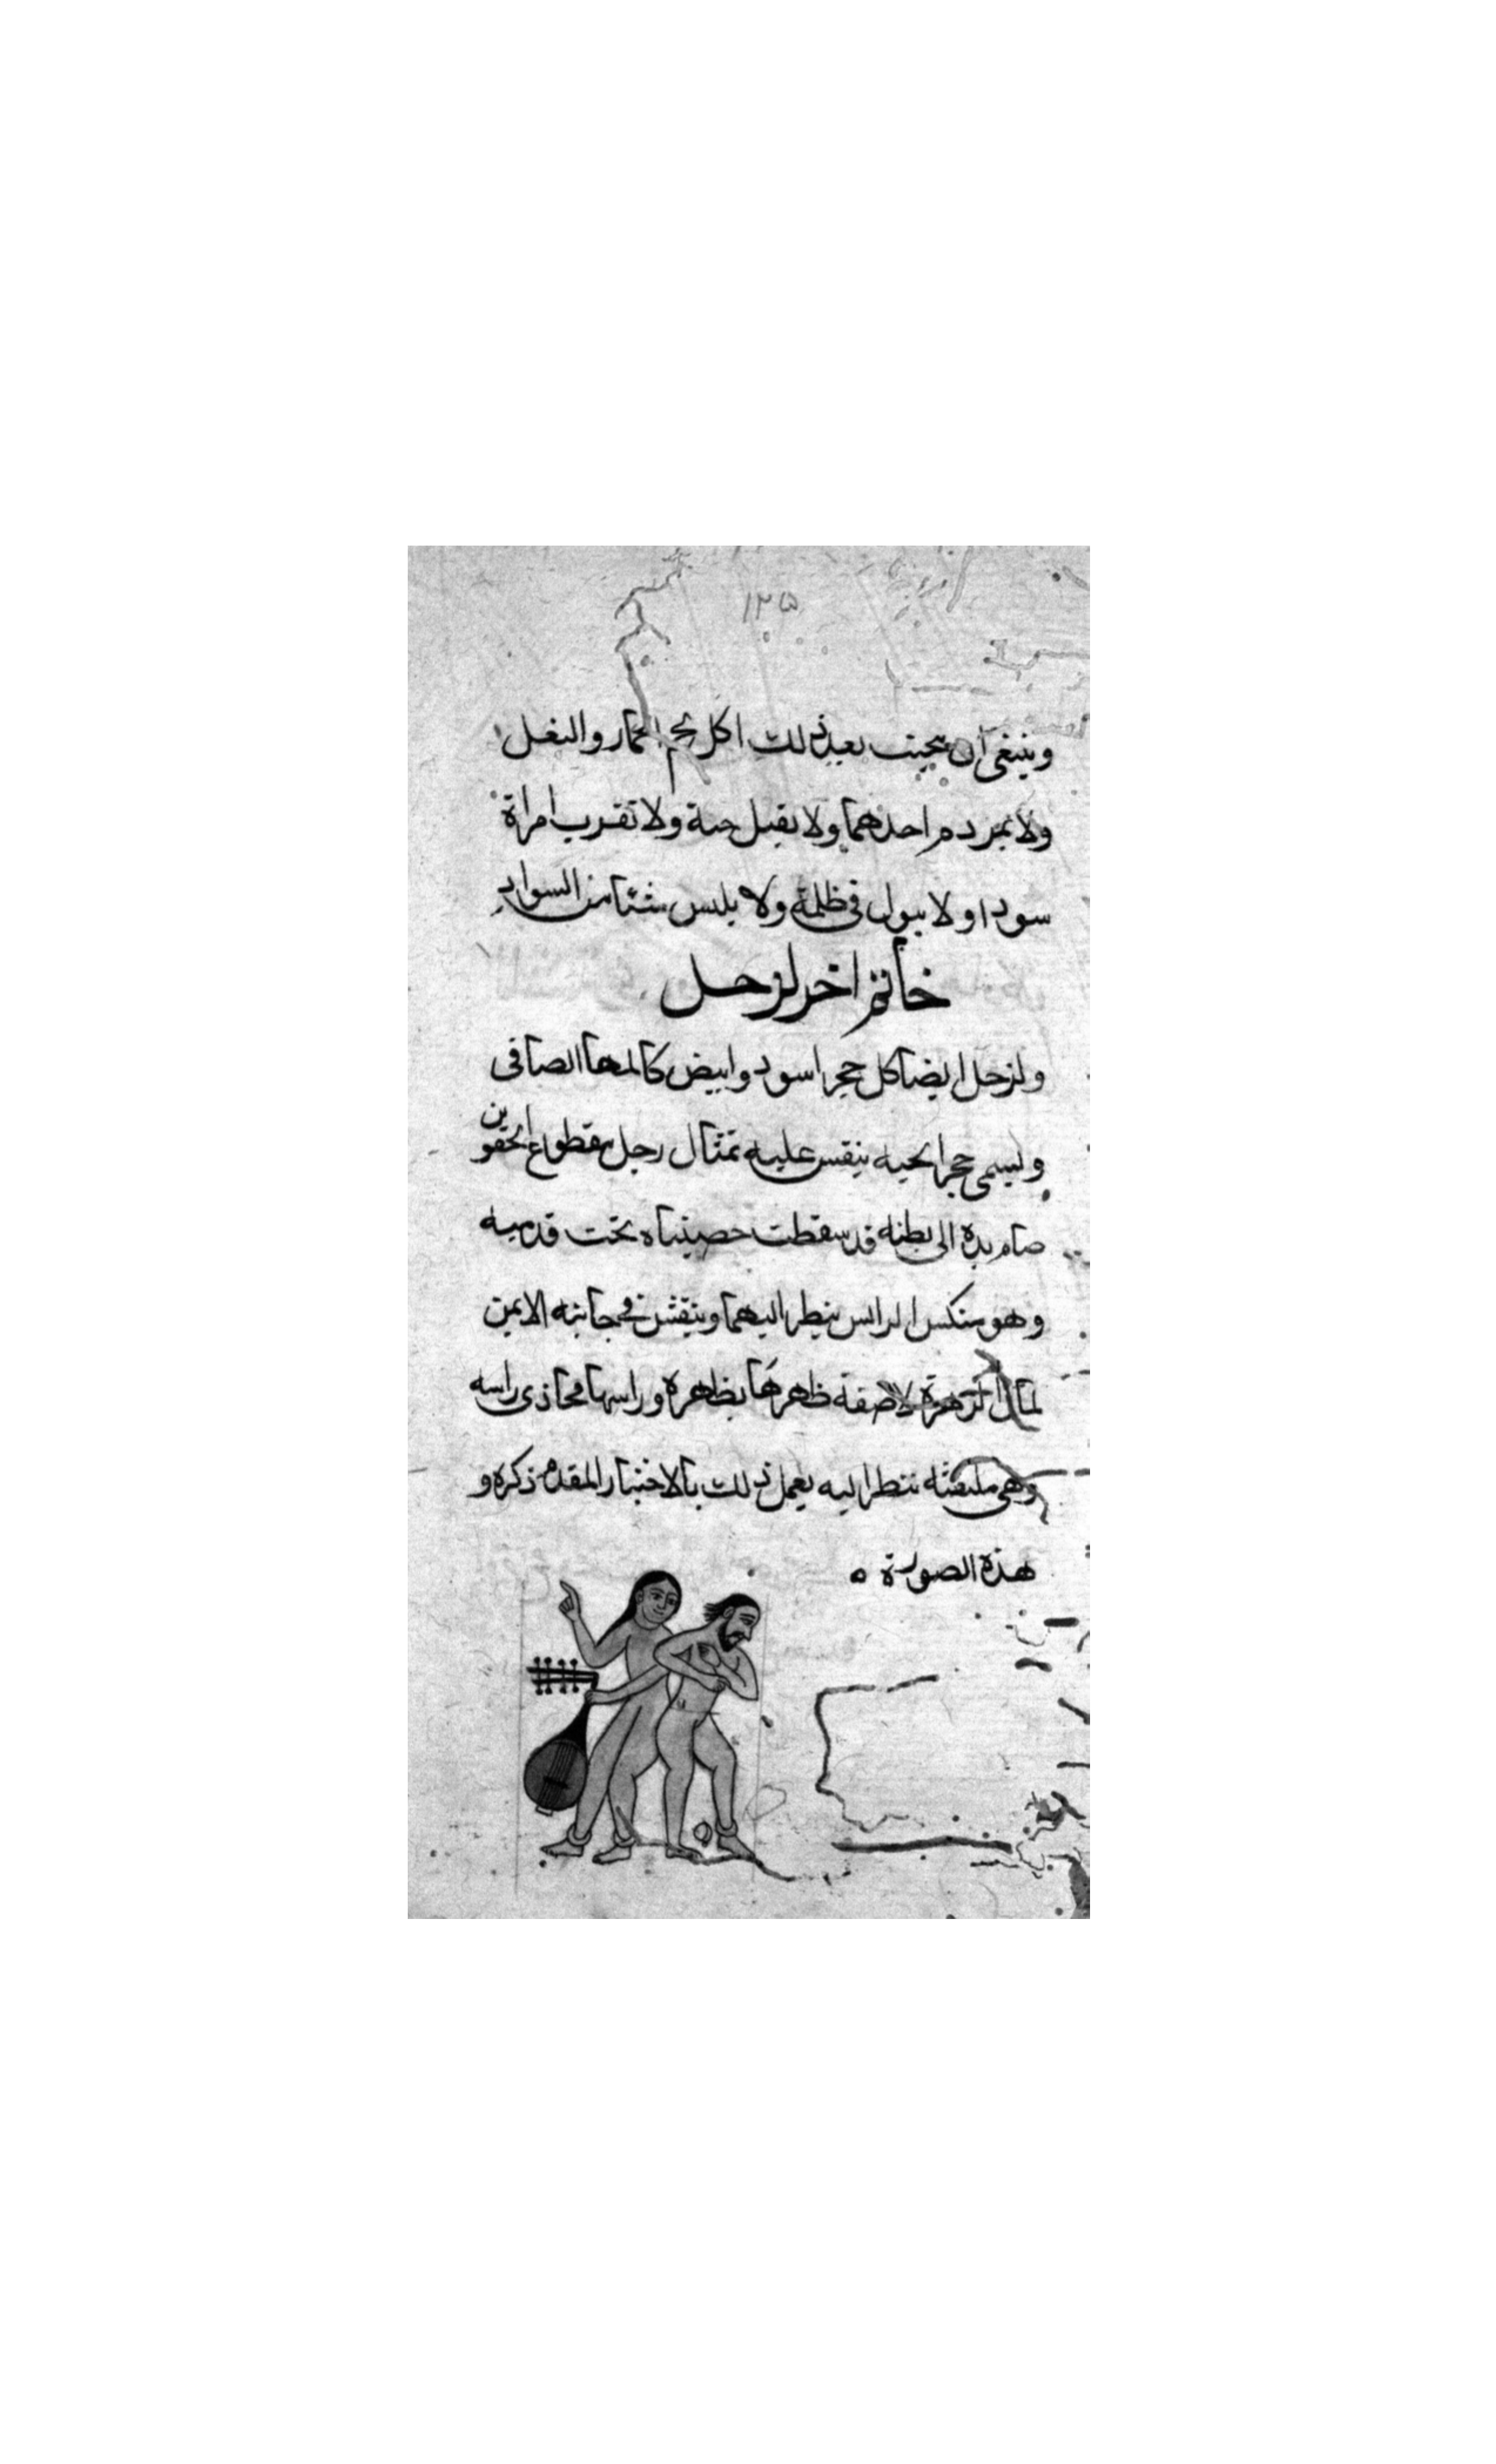 ١٢۵
وينبغي ان يجتنب بعد ذلك اكل لحم الحمار والبغل
ولا يمر دم احدهما ولا يقتل حية ولا تقرب امراة
سودا ولا يبول في ظلمة ولا يلبس شئا من السواد
خاتم اخر لزحل
ولزحل ايضا كل حجر اسود وابيض كالمها الصافي
وليسمى حجر الحيه ينقس عليه تمثال رجل مقطوع الحقوين
ضام يده الى بطنه قد سقطت خصيتاه تحت قدميه
وهو منكس الراس ينظر اليهما وينقش في جانبه الايمن
الزهرة لاصقة ظهرها بظهره وراسها محاذى راسه
وهي ملتفته تنظر اليه يعمل ذلك بالاختيار المقدم ذكره و
هذه الصورة ه